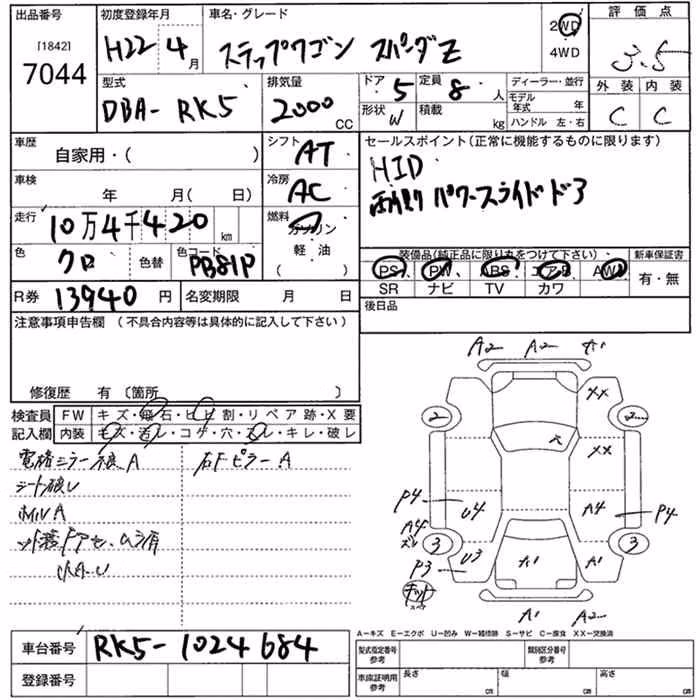 出品番号 初度登録年月 車名・グレード 評価点
[1842]
7044
H22 4月 ステップワゴン スパーダZ 2WD 3.5
4WD
外装 内装
C C
型式 排気量 ドア 定員 ディーラー・並行
DBA-RK5 2000CC 5 8人 モデル年式 年
形状 W 積載 kg ハンドル 左・右
車歴 シフト セールスポイント(正常に機能するものに限ります)
自家用・( ) AT HID
車検 冷房 パワースライドドア
年 月(日) AC
走行 燃料
10万4千420km ガソリン
軽油
色 色替 色コード 装備品(純正品に限り丸をつけて下さい) 新車保証書
クロ PB81P PS PW ABS エアB AW 有・無
SR ナビ TV カワ
R券 13940円 名変期限 月 日 後日品
注意事項申告欄 (不具合内容等は具体的に記入して下さい)
修復歴 有 〔箇所 〕
検査員 FW キズ・飛石・ヒビ割・リペア跡・X要
記入欄 内装 キズ・汚レ・コゲ・穴・ズレ・キレ・破レ
A2 A2 A1
XX
2 2
穴 XX
P4 U4 A4 P4
A4
ズレ
3 3
P3 U3 A1 A1
A1 A2
A-キズ E-エクボ U-凹み W-補修跡 S-サビ C-腐食 XX-交換済
車台番号 RK5-1024684 型式指定番号 参考 類別区分番号 参考
登録番号 車庫証明用 参考 長さ cm 幅 cm 高さ cm